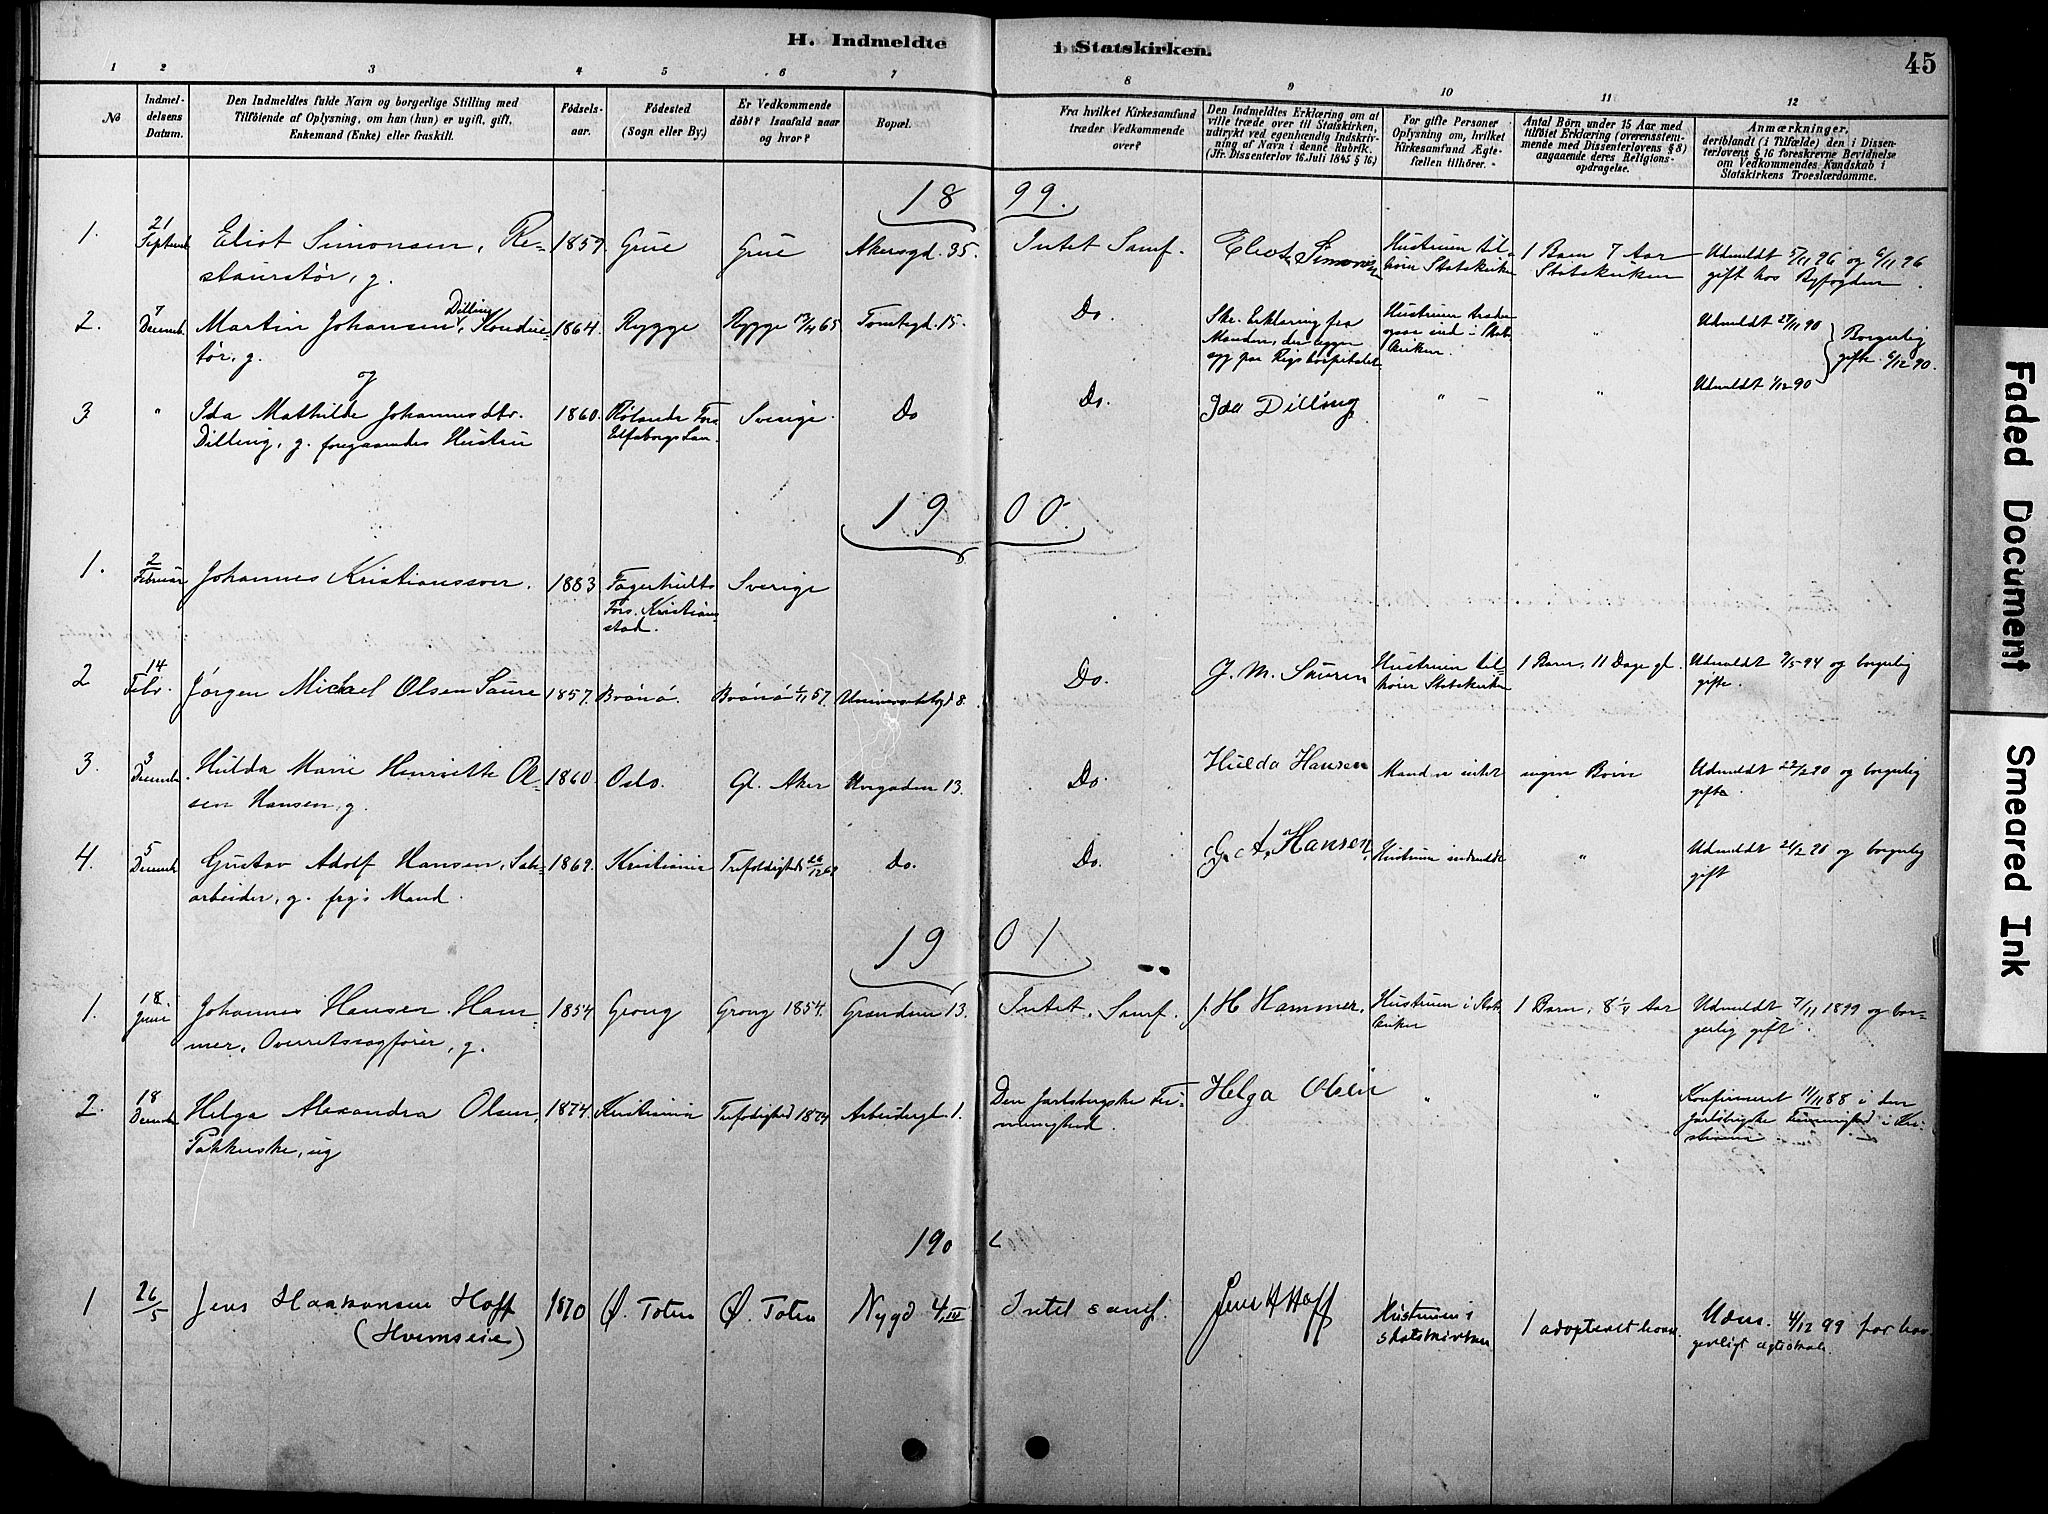 H. Indmeldte i Statskirken.
45
1 2 3 4 5 6 7 8 9 10 11 12
No
Indmel-
delsens
Datum.
Den Indmeldtes fulde Navn og borgerlige Stilling med
Tilföiende af Oplysning, om han (hun) er ugift, gift,
Enkemand (Enke) eller fraskilt.
Födsels-
aar.
Födested
(Sogn eller By.)
Er Vedkommende
döbt? Isaafald naar
og hvor?
Bopæl.
Fra hvilket Kirkesamfund
træder Vedkommende
over?
Den Indmeldtes Erklæring om at
ville træde over til Statskirken,
udtrykt ved egenhændig Indskriv-
ning af Navn i denne Rubrik.
(Jfr. Dissenterlov 16. Juli 1845 § 16.)
For gifte Personer
Oplysning om, hvilket
Kirkesamfund Ægte-
fællen tilhörer.
Antal Börn under 15 Aar med
tilföiet Erklæring (overensstem-
mende med Dissenterlovens § 8)
angaaende deres Religions-
opdragelse.
Anmærkninger,
deriblandt (i Tilfælde) den i Dissen-
terlovens § 16 foreskrevne Bevidnelse
om Vedkommendes Kundskab i
Statskirkens Troeslærdomme.
1899.
1.
21
Septemb.
Eliot Simonsen, Re-
stauratør, g.
1857
Grue
Grue
Akersgd. 35.
Intet Samf.
Eliot Simonsen
Hustruen til-
hører Statskirken
1 Barn 7 Aar
Statskirken
Udmeldt 5/11 96 og 6/11 96
gift hos Byfogden.
2.
7
Decemb.
Martin Johansen Dilling, Konduk-
tør, g.
og
1864.
Rygge
Rygge 17/4 65
Tomtegd. 15.
Do.
Skr. Erklæring fra
Manden, der ligger
syg paa Rigshospitalet
Hustruen træder
ogsaa ind i Stats
kirken.
"
Udmeldt 29/11 90
Borgerlig
gifte 6/12 90.
3
"
Ida Mathilde Johannesdtr.
Dilling, g. foregaaendes Hustru
1860.
Rölanda Fors
Elfsborgs Län.
Sverige.
Do
Do.
Ida Dilling
" -
"
Udmeldt 1/12 90
1900.
1.
2
Februar
Johannes Kristiansson.
1883
Fagerhults
Fors. Kristian-
stad.
Sverige
2
14
Febr.
Jørgen Mickael Olsen Saure
1857.
Brönö.
Brönö 1/11 57.
Universitetsgd 8.
Do.
J. M. Sauren
Hustruen til-
hører Statskirken
1 Barn, 11 Dage gl.
Udmeldt 9/5 94 og borgerlig
gifte.
3.
3
Decemb.
Hulda Marie Henriette Ol-
sen Hansen, g.
1860.
Oslo.
Gl. Aker
13.
Do.
Hulda Hansen
ingen Børn
Udmeldt 22/2 90 og borgerlig
gifte.
4.
5
Decemb.
Gustav Adolf Hansen,
arbeider, g. frg's Mand.
1869.
Kristiania
Trefoldigheds 26/12 69
Do.
Do.
G. A. Hansen.
Hustruen indmeldt
"
Udmeldt 21/2 90 og borgerlig
gift
1901
1.
18
Juni
Johannes Hansen Ham-
mer, Overretssagfører, g.
1854
Grong
Grong 1854.
Grændsen 13.
Intet Samf.
J. H Hammer.
Hustruen i Stats
kirken
1 Barn, 8 1/4 Aar
Udmeldt 7/11 1899 og bor-
gerlig gift.
2.
18
Decemb.
Helga Alexandra Olsen,
Pakkerske, ug
1874.
Kristiania
Trefoldighed 1874
Arbeidergd. 1.
Den Jarlsbergske Fri-
menighed.
Helga Olsen
"
"
Konfirmeret 11/11 88 i den
jarlsbergske Frimenighed i Kri-
stiania
1902
1
26/5
Jens Haakonsen Hoff
(Hvemseie)
1870
Ø. Toten
Ø. Toten
Nygd 4, IV
Intet samf.
Jens H Hoff
Hustruen i
statskirken
1 adopteret barn.
Udm. 4/12 99 for bor
gerligt ægteskab.
Faded Document
Smeared Ink